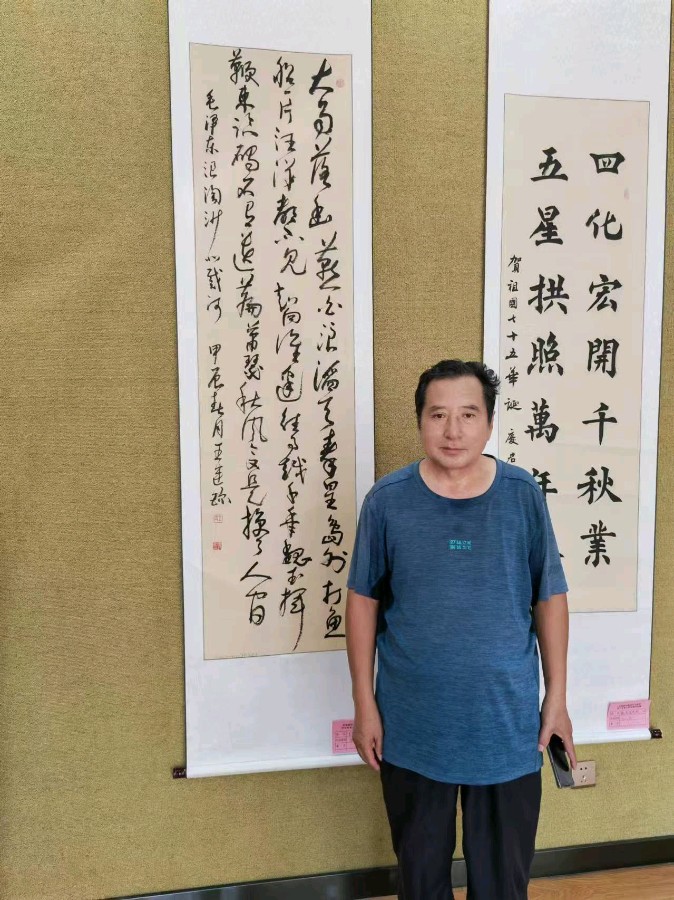 大雨落幽燕白浪滔天秦皇島外打魚
船一片汪洋都不見知向誰邊往事越千年魏武揮
鞭東臨碣石有遺篇蕭瑟秋風今又是換了人間
毛澤東浪淘沙北戴河 甲辰春月王
四化宏開千秋業
五星拱照萬年
賀祖國七十五華誕